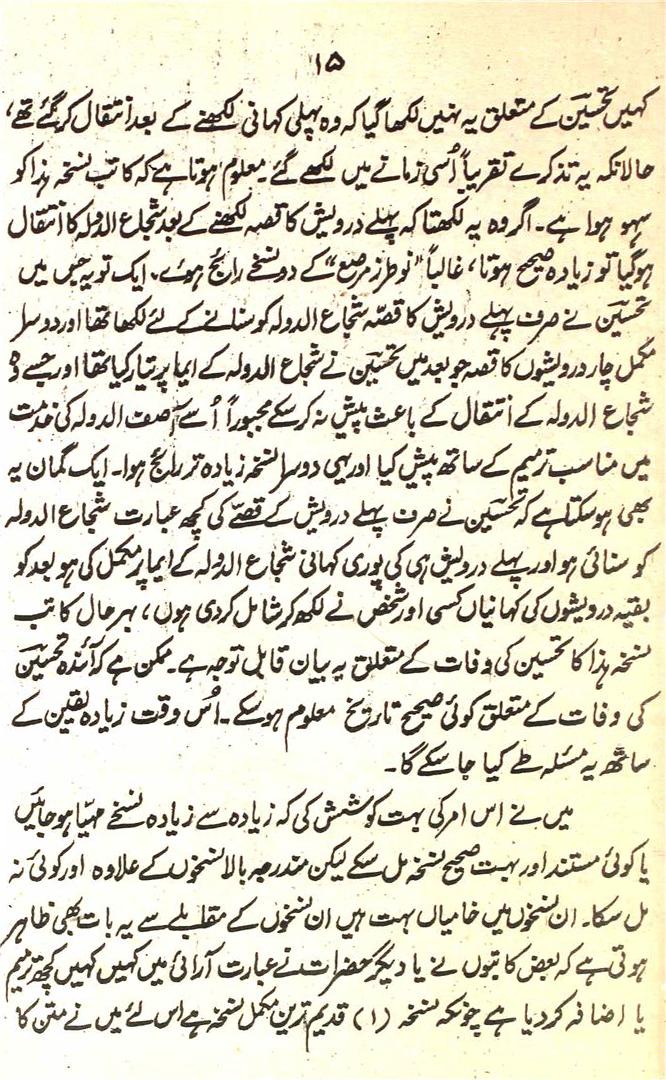 ۱۵
کہیں تحسین کے متعلق یہ نہیں لکھا گیا کہ وہ پہلی کہانی لکھنے کے بعد انتقال کر گئے تھے،
حالانکہ یہ تذکرے تقریباً اُسی زمانے میں لکھے گئے۔ معلوم ہوتا ہے کہ کاتب نسخہ ہذا کو
سہو ہوا ہے۔ اگر وہ یہ لکھتا کہ پہلے درویش کا قصہ لکھنے کے بعد شجاع الدولہ کا انتقال
ہو گیا تو زیادہ صحیح ہوتا، غالباً "نوطرز مرصع" کے دو نسخے رائج ہوئے، ایک تو یہ جس میں
تحسین نے صرف پہلے درویش کا قصّہ شجاع الدولہ کو سنانے کے لئے لکھا تھا اور دوسرا
مکمل چار درویشوں کا قصہ جو بعد میں تحسین نے شجاع الدولہ کے ایما پر تیار کیا تھا اور جسے وہ
شجاع الدولہ کے انتقال کے باعث پیش نہ کر سکے مجبوراً اُسے آصف الدولہ کی خدمت
میں مناسب ترمیم کے ساتھ پیش کیا اور یہی دوسرا نسخہ زیادہ تر رائج ہوا۔ ایک گمان یہ
بھی ہو سکتا ہے کہ تحسین نے صرف پہلے درویش کے قصّے کی کچھ عبارت شجاع الدولہ
کو سنائی ہو اور پہلے درویش ہی کی پوری کہانی شجاع الدولہ کے ایما پر مکمل کی ہو بعد کو
بقیہ درویشوں کی کہانیاں کسی اور شخص نے لکھ کر شامل کر دی ہوں، بہر حال کاتب
نسخہ ہذا کا تحسین کی وفات کے متعلق یہ بیان قابل توجہ ہے۔ ممکن ہے کہ آئندہ تحسین
کی وفات کے متعلق کوئی صحیح تاریخ معلوم ہو سکے۔ اُس وقت زیادہ یقین کے
ساتھ یہ مسئلہ طے کیا جا سکے گا۔
میں نے اس امر کی بہت کوشش کی کہ زیادہ سے زیادہ نسخے مہیّا ہو جائیں
یا کوئی مستند اور بہت صحیح نسخہ مل سکے لیکن مندرجہ بالا نسخوں کے علاوہ اور کوئی نہ
مل سکا۔ ان نسخوں میں خامیاں بہت ہیں ان نسخوں کے مقابلے سے یہ بات بھی ظاہر
ہوتی ہے کہ بعض کاتبوں نے یا دیگر حضرات نے عبارت آرائی میں کہیں کہیں کچھ ترمیم
یا اضافہ کر دیا ہے چونکہ نسخہ (۱) قدیم ترین مکمل نسخہ ہے اس لئے میں نے متن کا